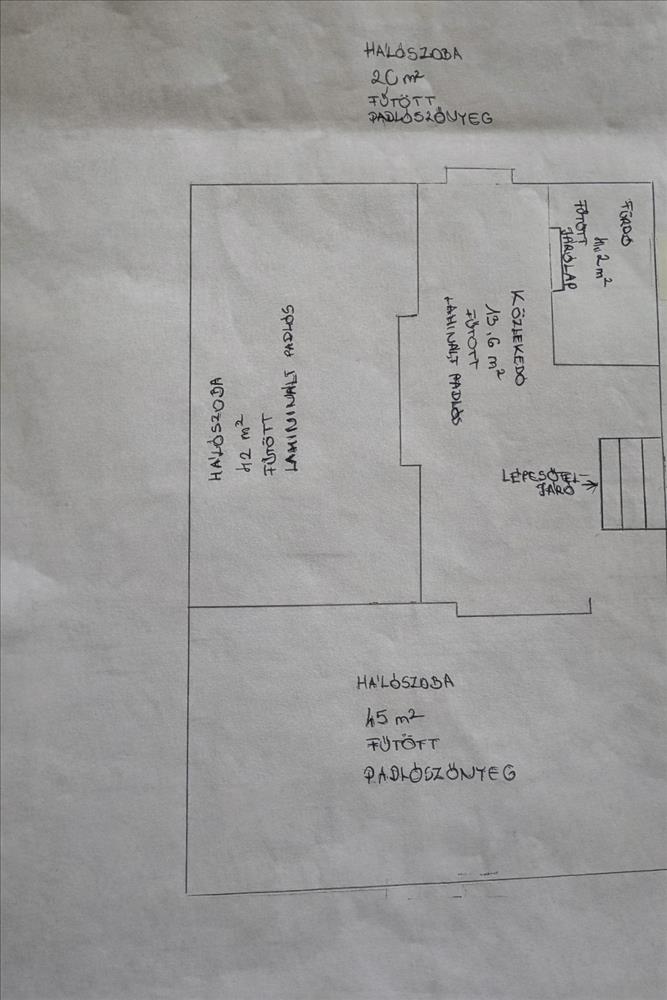 HÁLÓSZOBA
20 m²
FŰTÖTT
PADLÓSZŐNYEG
FÜRDŐ
4,2 m²
FŰTÖTT
JÁRÓLAP
KÖZLEKEDŐ
13,6 m²
FŰTÖTT
LAMINÁLT PADLÓS
HÁLÓSZOBA
42 m²
FŰTÖTT
LAMININÁLT PADLÓS
LÉPCSŐFEL-
JÁRÓ
HÁLÓSZOBA
45 m²
FŰTÖTT
PADLÓSZŐNYEG